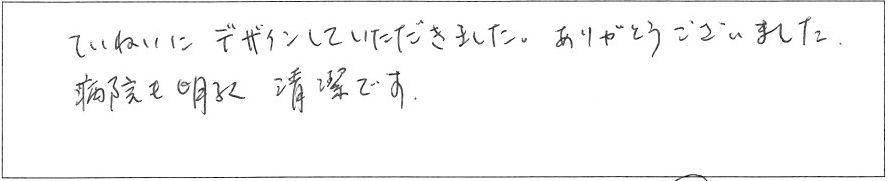 ていねいに デザインしていただきました。ありがとうございました.
病院も明るく 清潔です.